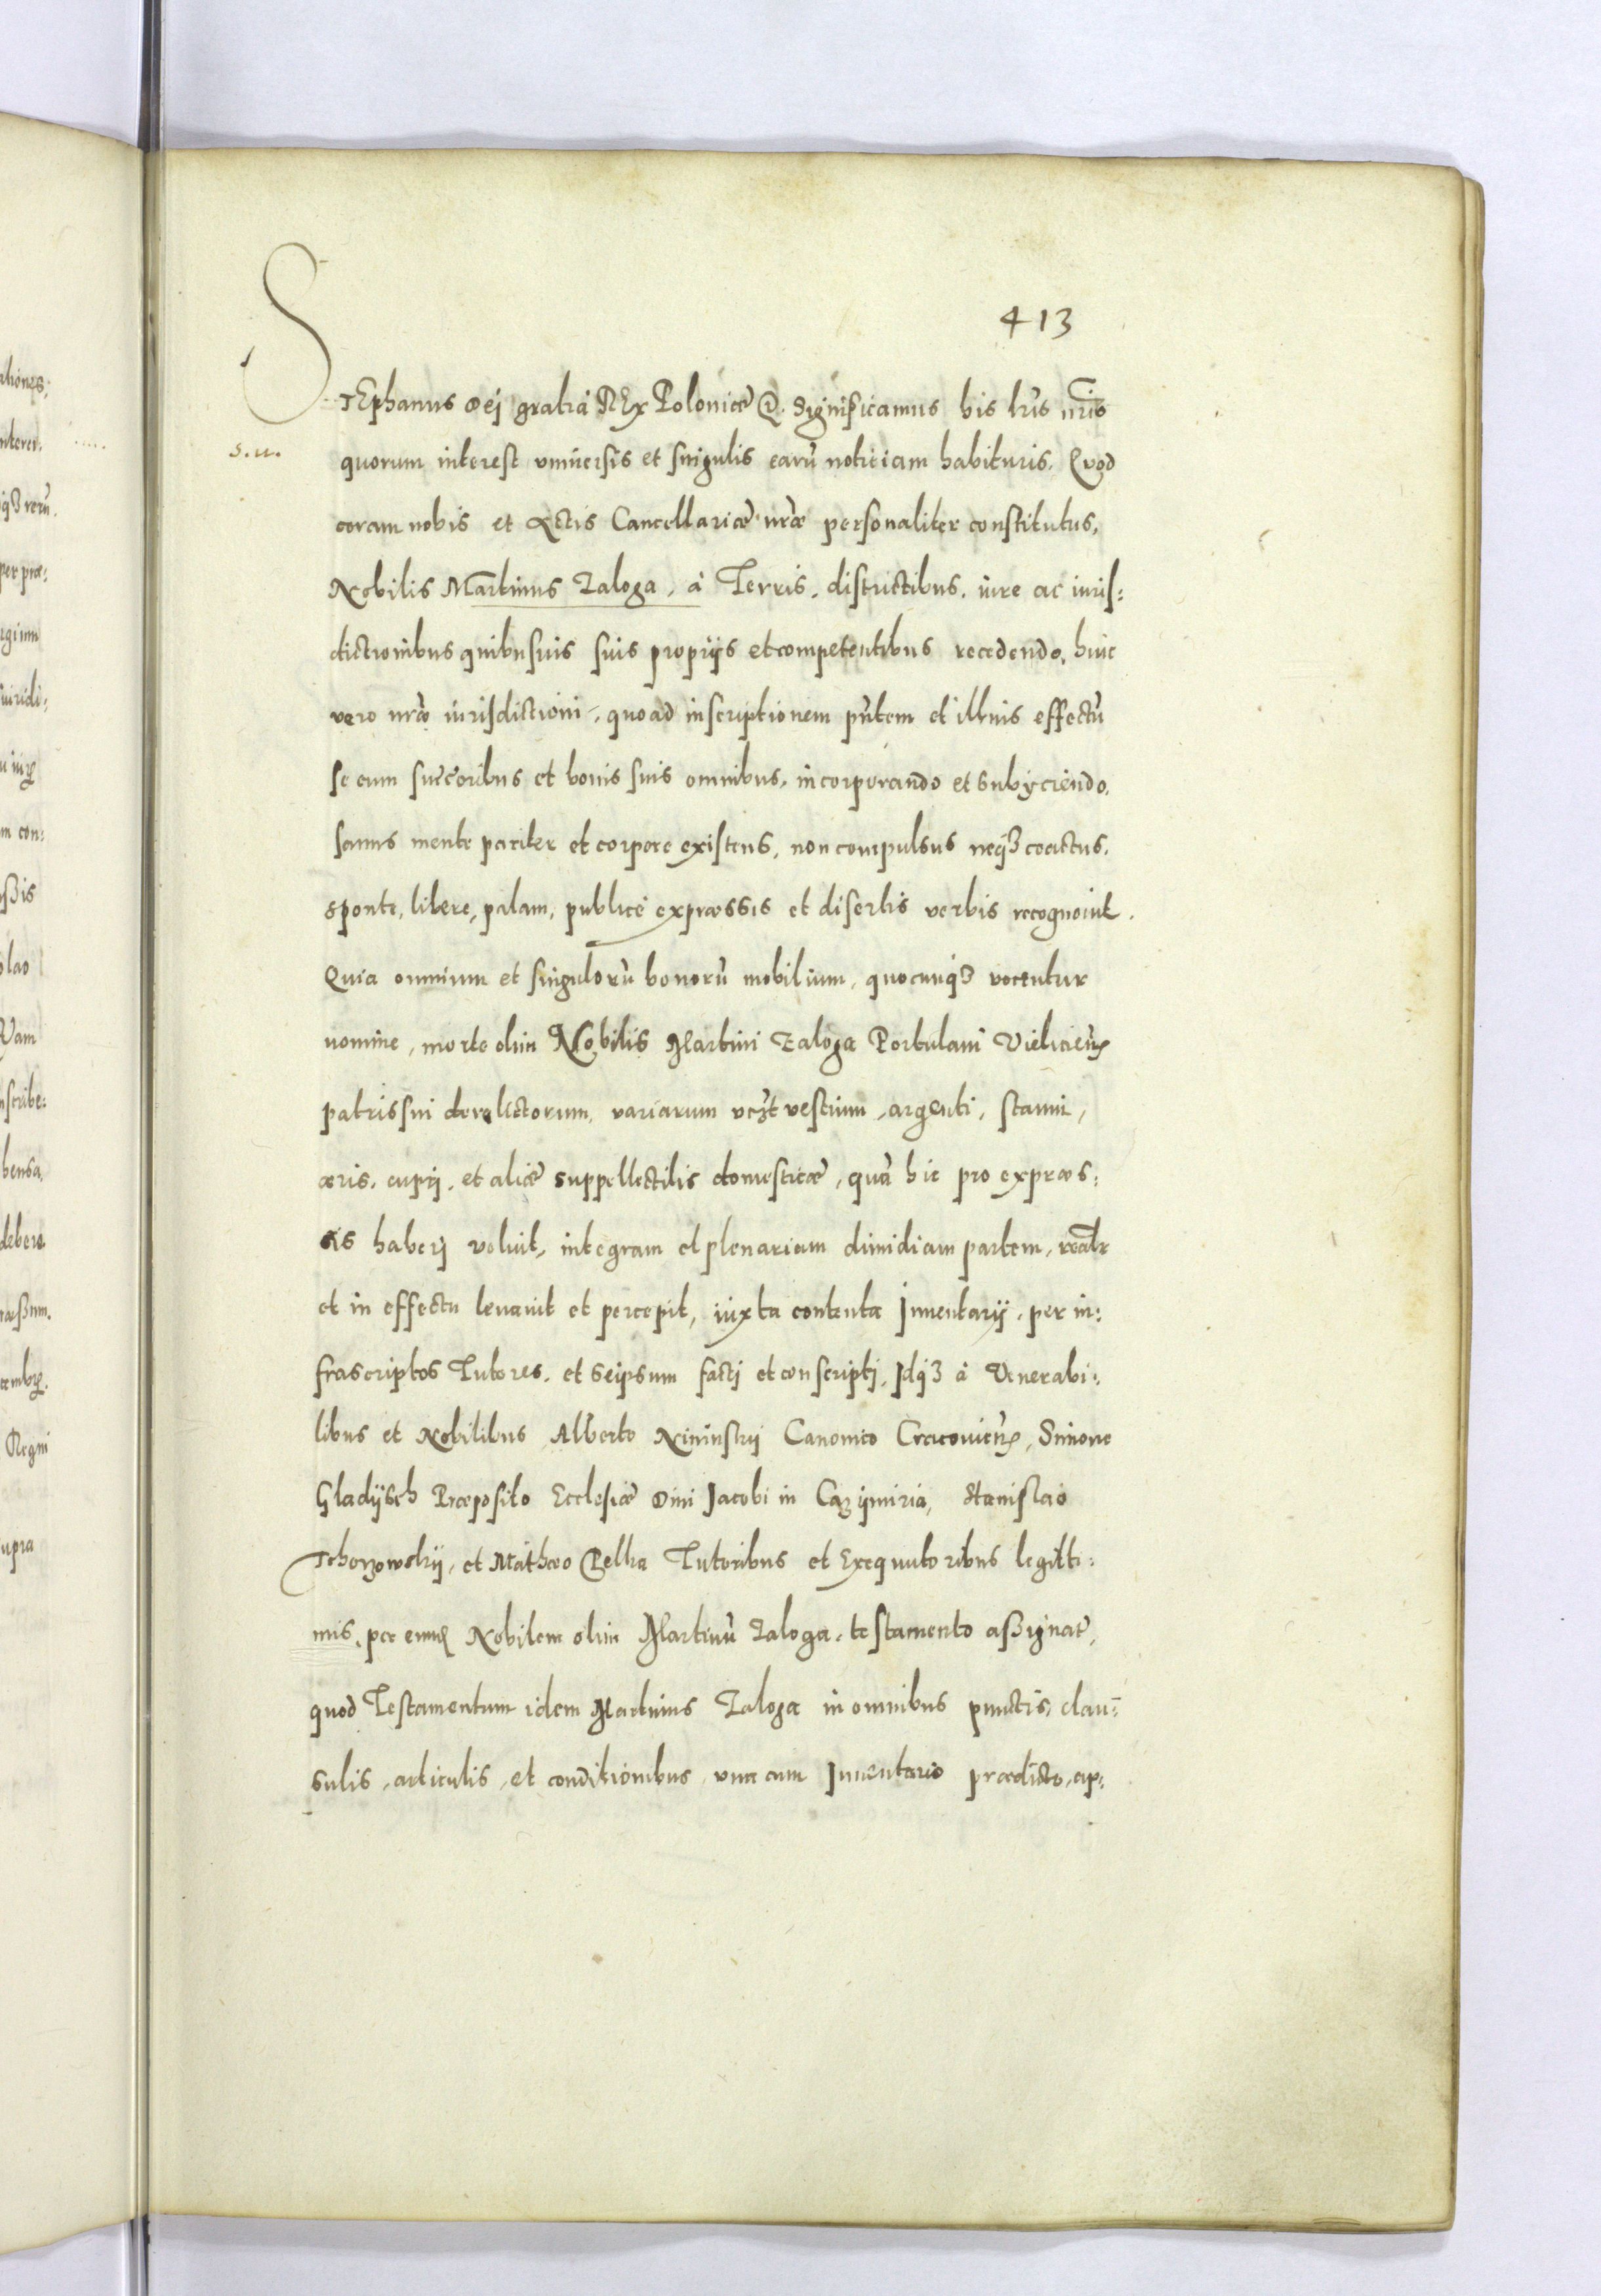 413
STEphanus Dej gratia REx Poloniæ &. Significamus his lris nris
s. u.
quorum interest vniuersis et singulis earũ notitiam habituris. Quod
coram nobis et Actis Cancellariæ nræ personaliter constitutus,
Nobilis Martinus Zaloga, à Terris, districtibus, iure ac iuris:
dictionibus quibusuis suis proprijs et competentibus recedendo, huic
vero nræ iurisdictioni, quoad inscriptionem pñtem et illius effectũ
se cum succõribus et bonis suis omnibus, incorporando et subijciendo,
sanus mente pariter et corpore existens, non compulsus neqз coactus,
sponte, libere, palam, publice expræssis et disertis verbis recognouit.
Quia omnium et singulorũ bonorũ mobilium, quocunqз vocentur
nomine, morte olim Nobilis Martini Zaloga Portulani Vieliciens
patris sui derelictorum, variarum vczt vestium, argenti, stanni,
æris, cuprj, et aliæ suppellectilis domesticæ, quã hic pro expræs:
sis haberj voluit, integram et plenariam dimidiam partem, realr
et in effectu leuauit et percepit, iuxta contenta Inuentarij, per in:
frascriptos Tutores, et seipsum factj et conscriptj, Idqз à Venerabi:
libus et Nobilibus Alberto Nininskij Canonico Cracouiens, Simone
Gladijsch Præposito Ecclesiæ Diui Jacobi in Cazijmiria, Stanislao
et Matheo Pelka Tutoribus et Exequutoribus legitti:
mis, per eund Nobilem olim Martinũ Zaloga, testamento assignat,
quod Testamentum idem Martinus Zaloga in omnibus punctis, clau:
sulis, articulis, et conditionibus, vna cum Inuentario prædicto, ap: